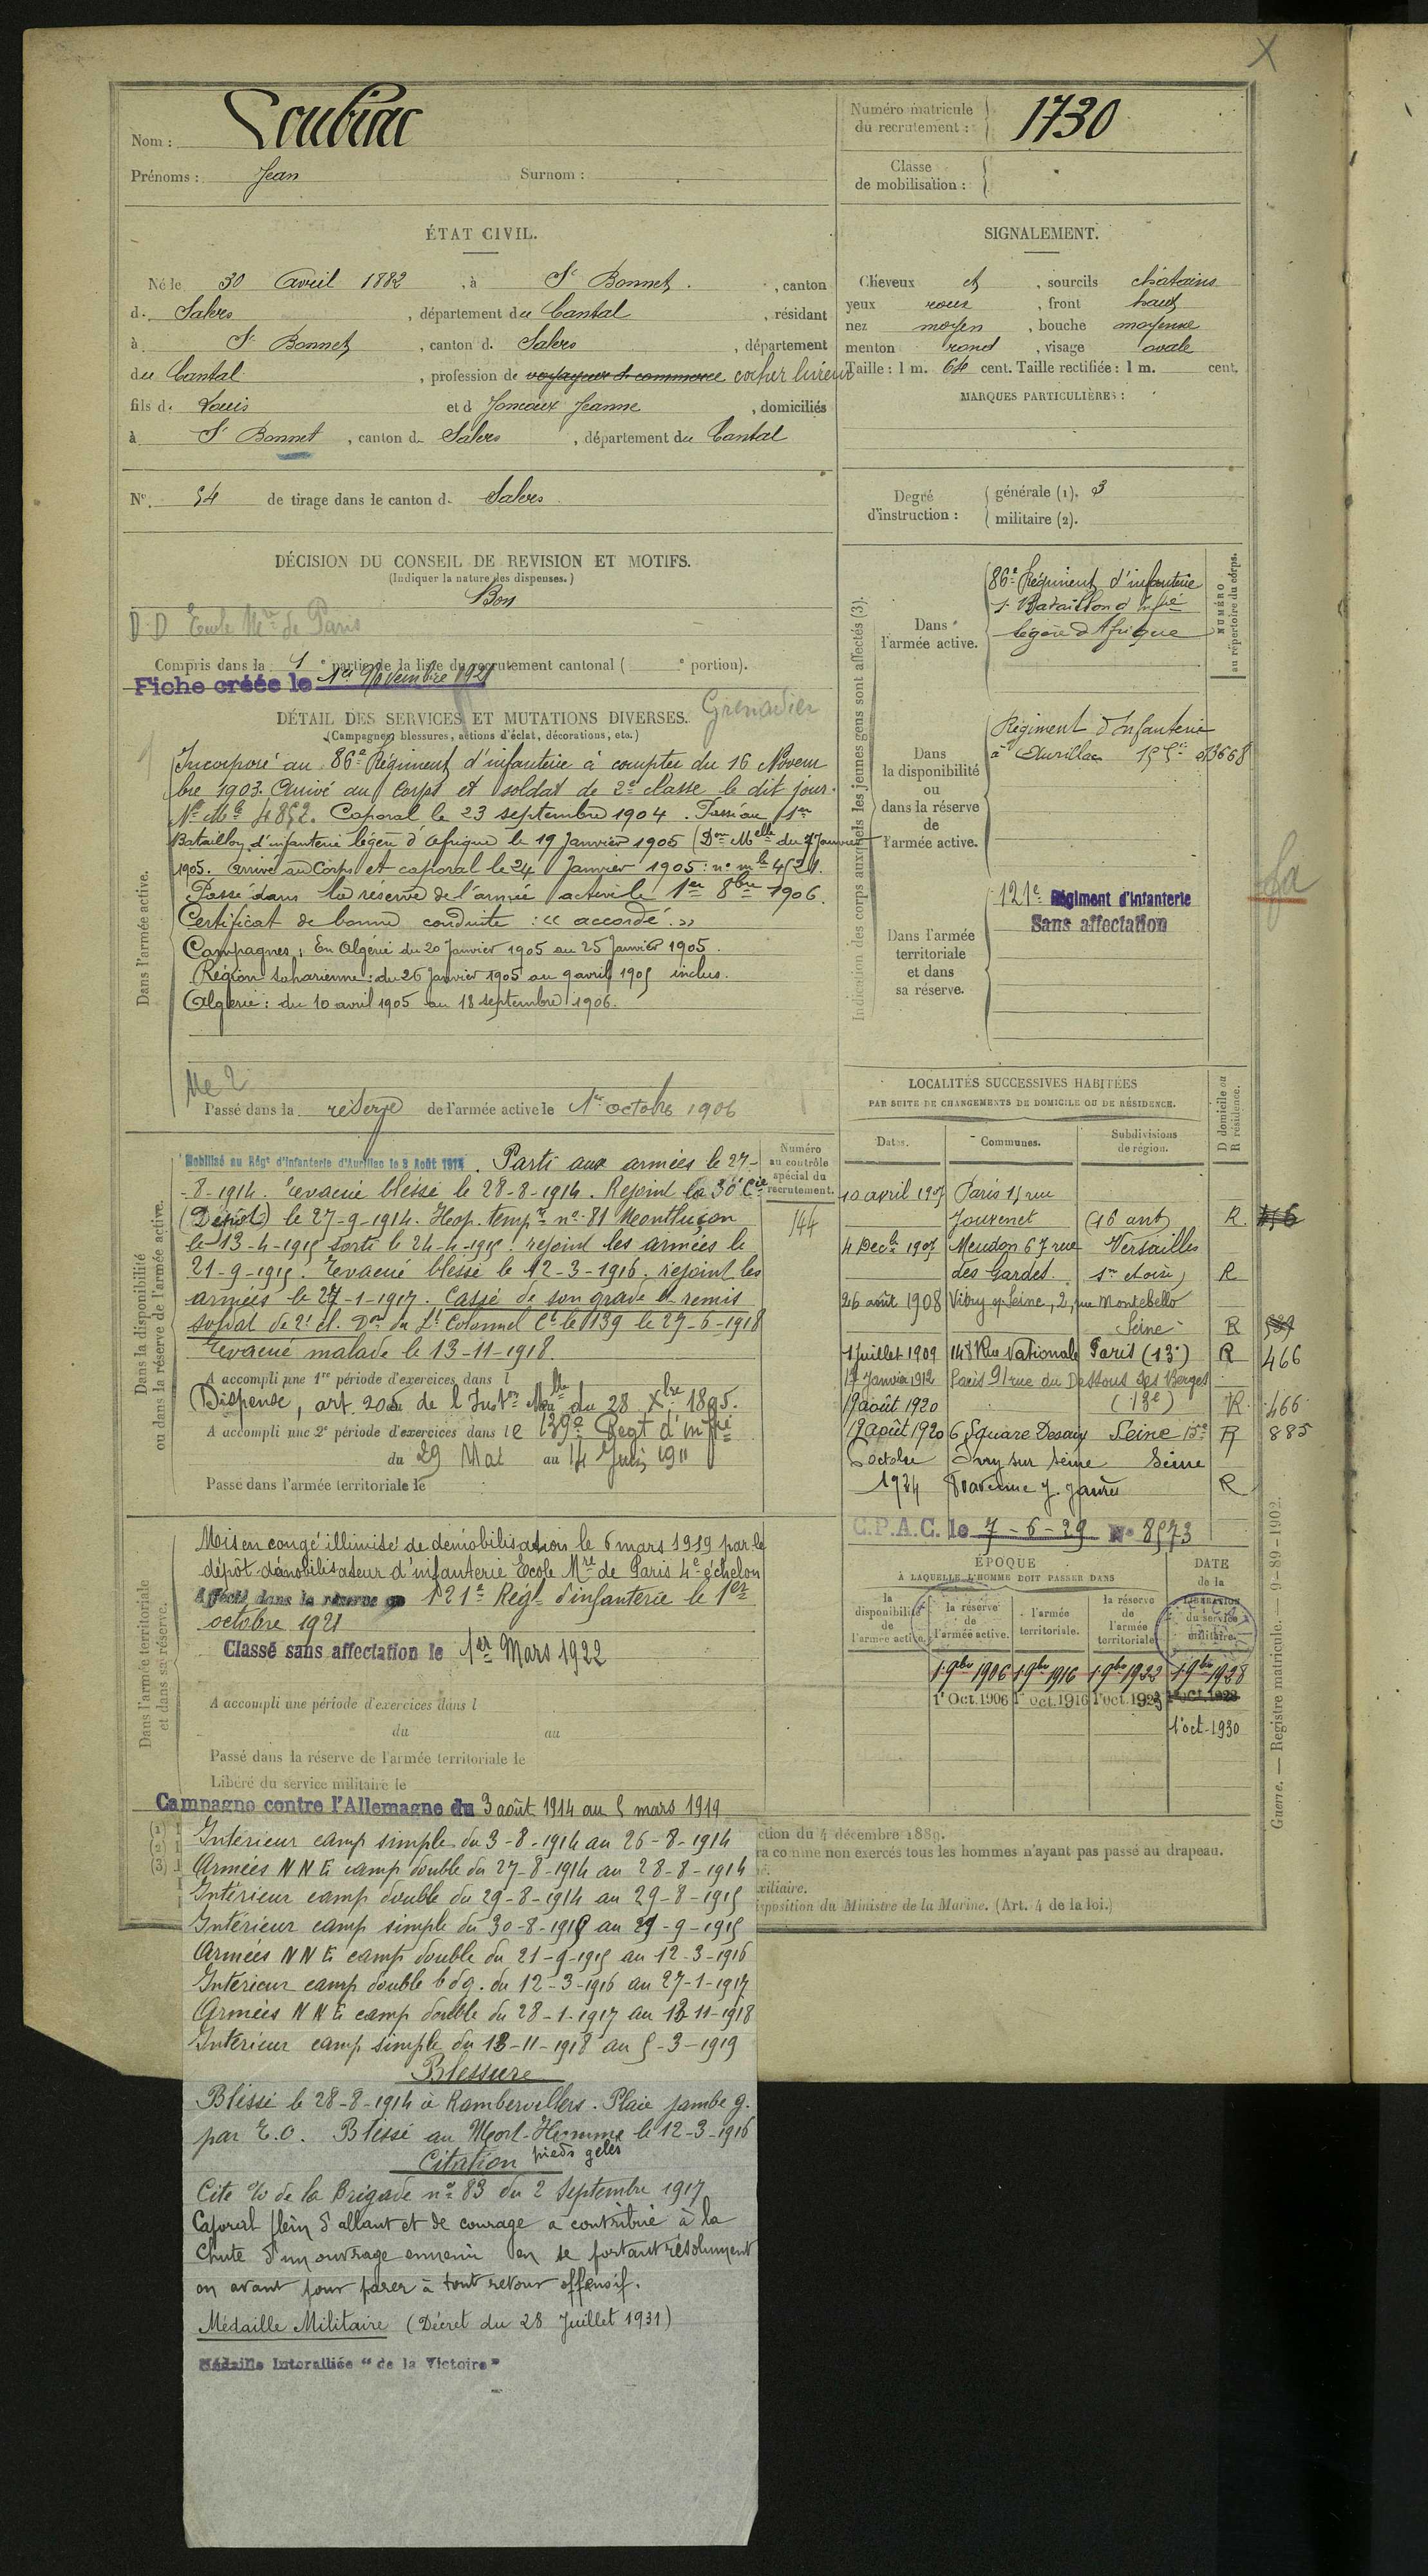 Nom : Soubrac
Prénoms : Jean Surnom :
Numéro matricule du recrutement : 1730
Classe de mobilisation :
ÉTAT CIVIL.
Né le 30 Avril 1882, à St Bonnet, canton
d. Salers, département du Cantal, résidant
à St Bonnet, canton d. Salers, département
du Cantal, profession de voyageur d. commerce cocher livreur
fils d. Louis et d Joncoux Jeanne, domiciliés
à St Bonnet, canton d. Salers, département du Cantal
N° 54 de tirage dans le canton d. Salers
SIGNALEMENT.
Cheveux et, sourcils châtains
yeux roux, front haut
nez moyen, bouche moyenne
menton rond, visage ovale
Taille : 1 m. 64 cent. Taille rectifiée : 1 m. cent.
MARQUES PARTICULIÈRES :
Degré d'instruction : générale (1). 3
militaire (2).
DÉCISION DU CONSEIL DE REVISION ET MOTIFS.
(Indiquer la nature des dispenses.)
Bon
D.D Ecole Mre de Paris
Compris dans la 1e partie de la liste du recrutement cantonal ( e portion).
Fiche créée le 1er Novembre 1921
DÉTAIL DES SERVICES ET MUTATIONS DIVERSES. Grenadier
(Campagnes, blessures, actions d'éclat, décorations, etc.)
Dans l'armée active.
Incorporé au 86e Régiment d'infanterie à compter du 16 Novem
bre 1903. Arrivé au Corps et soldat de 2e classe le dit jour.
No Mle 4852. Caporal le 23 septembre 1904. Passé au 1er
Bataillon d'infanterie légère d'Afrique le 19 Janvier 1905 (Don Melle du 7 Janvier
1905. Arrivé au Corps et caporal le 24 Janvier 1905 : no mle 4521.
Passé dans la réserve de l'armée active le 1er 8bre 1906.
Certificat de bonne conduite : « accordé. »
Campagnes : En Algérie du 20 Janvier 1905 au 25 Janvier 1905.
Région saharienne : du 26 Janvier 1905 au 9 avril 1905 inclus.
Algérie : du 10 avril 1905 au 18 septembre 1906.
Me 2
Passé dans la réserve de l'armée active le 1er octobre 1906
Indication des corps auxquels les jeunes gens sont affectés (3).
NUMÉRO au répertoire du corps.
Dans l'armée active.
86e Régiment d'infanterie
1r Bataillon d'Infrie
légère d'Afrique
Dans la disponibilité ou dans la réserve de l'armée active.
Régiment d'Infanterie
à Aurillac
Dans l'armée territoriale et dans sa réserve.
121e Régiment d'Infanterie
Sans affectation
Dans la disponibilité ou dans la réserve de l'armée active.
Numéro au contrôle spécial du recrutement.
144
Mobilisé au Régt d'Infanterie d'Aurillac le 3 Août 1914. Parti aux armées le 27-
-8-1914. Evacué blessé le 28-8-1914. Rejoint la 30e Cie
(Dépôt) le 27-9-1914. Hosp. tempre no 81 Montluçon
le 13-4-1915 sorti le 24-4-1915. rejoint les armées le
21-9-1915. Evacué blessé le 12-3-1916. rejoint les
armées le 27-1-1917. Cassé de son grade et remis
soldat de 2e cl. Don du Lt Colonnel Ct le 139 le 27-6-1918
Evacué malade le 13-11-1918
A accompli une 1re période d'exercices dans l
Dispense, art. 205 de l'Instron Melle du 28 Xbre 1895.
A accompli une 2e période d'exercices dans le 139e Regt d'infrie
du 29 Mai au 14 Juin 1911
Passé dans l'armée territoriale le
LOCALITÉS SUCCESSIVES HABITÉES
PAR SUITE DE CHANGEMENTS DE DOMICILE OU DE RÉSIDENCE.
Dates. Communes. Subdivisions de région. D domicile ou R résidence.
10 avril 1907 Paris 15 rue
Jouvenet (16 art) R.
4 Decbre 1907 Meudon 67 rue Versailles
des Gardes R
26 août 1908 Vitry s/ Seine, 2, rue Montebello
Seine R
1 Juillet 1909 148 Rue Nationale Paris (13e) R 466
17 Janvier 1912 Paris 91 rue du Dessous des Berges
19 août 1920 (13e) R. 466
19 août 1920 6 Square Desaix Seine 15e R 885
octobre Ivry sur Seine Seine
1924 avenue J. Jaurès R
C.P.A.C. le 7-6-29 No 8573
Dans l'armée territoriale et dans sa réserve.
Mis en congé illimité de démobilisation le 6 mars 1919 par le
dépôt démobilisateur d'infanterie Ecole Mre de Paris 4e échelon
Affecté dans la réserve au 121e Régt d'infanterie le 1er
octobre 1921
Classé sans affectation le 1er Mars 1922
A accompli une période d'exercices dans l
du au
Passé dans la réserve de l'armée territoriale le
Libéré du service militaire le
ÉPOQUE À LAQUELLE L'HOMME DOIT PASSER DANS
la disponibilité de l'armée active. la réserve de l'armée active. l'armée territoriale. la réserve de l'armée territoriale.
DATE de la LIBÉRATION du service militaire.
1 9bre 1906 1 9bre 1916 1 9bre 1922 1 9bre 1928
1r Oct. 1906 1r oct. 1916 1r oct. 1923 1r oct. 1928
1r oct. 1930
Guerre. — Registre matricule. — 9-89-1902.
Campagne contre l'Allemagne du 3 août 1914 au 5 mars 1919
Intérieur camp simple du 3-8-1914 au 26-8-1914
Armées N N E camp double du 27-8-1914 au 28-8-1914
Intérieur camp double du 29-8-1914 au 29-8-1915
Intérieur camp simple du 30-8-1915 au 21-9-1915
Armées N N E camp double du 21-9-1915 au 12-3-1916
Intérieur camp double bdg. du 12-3-1916 au 27-1-1917
Armées N N E camp double du 28-1-1917 au 13-11-1918
Intérieur camp simple du 13-11-1918 au 5-3-1919
Blessure
Blessé le 28-8-1914 à Rambervillers. Plaie jambe g.
par E.O. Blessé au Mort-Homme le 12-3-1916
pieds gelés
Citation
Cité o/o de la Brigade no 83 du 2 Septembre 1917
Caporal plein d'allant et de courage a contribué à la
chute d'un ouvrage ennemi en se portant résolument
en avant pour parer à tout retour offensif.
Médaille Militaire (Décret du 28 Juillet 1931)
Médaille Interalliée "de la Victoire"
ction du 4 décembre 1889.
ra comme non exercés tous les hommes n'ayant pas passé au drapeau.
xiliaire.
isposition du Ministre de la Marine. (Art. 4 de la loi.)